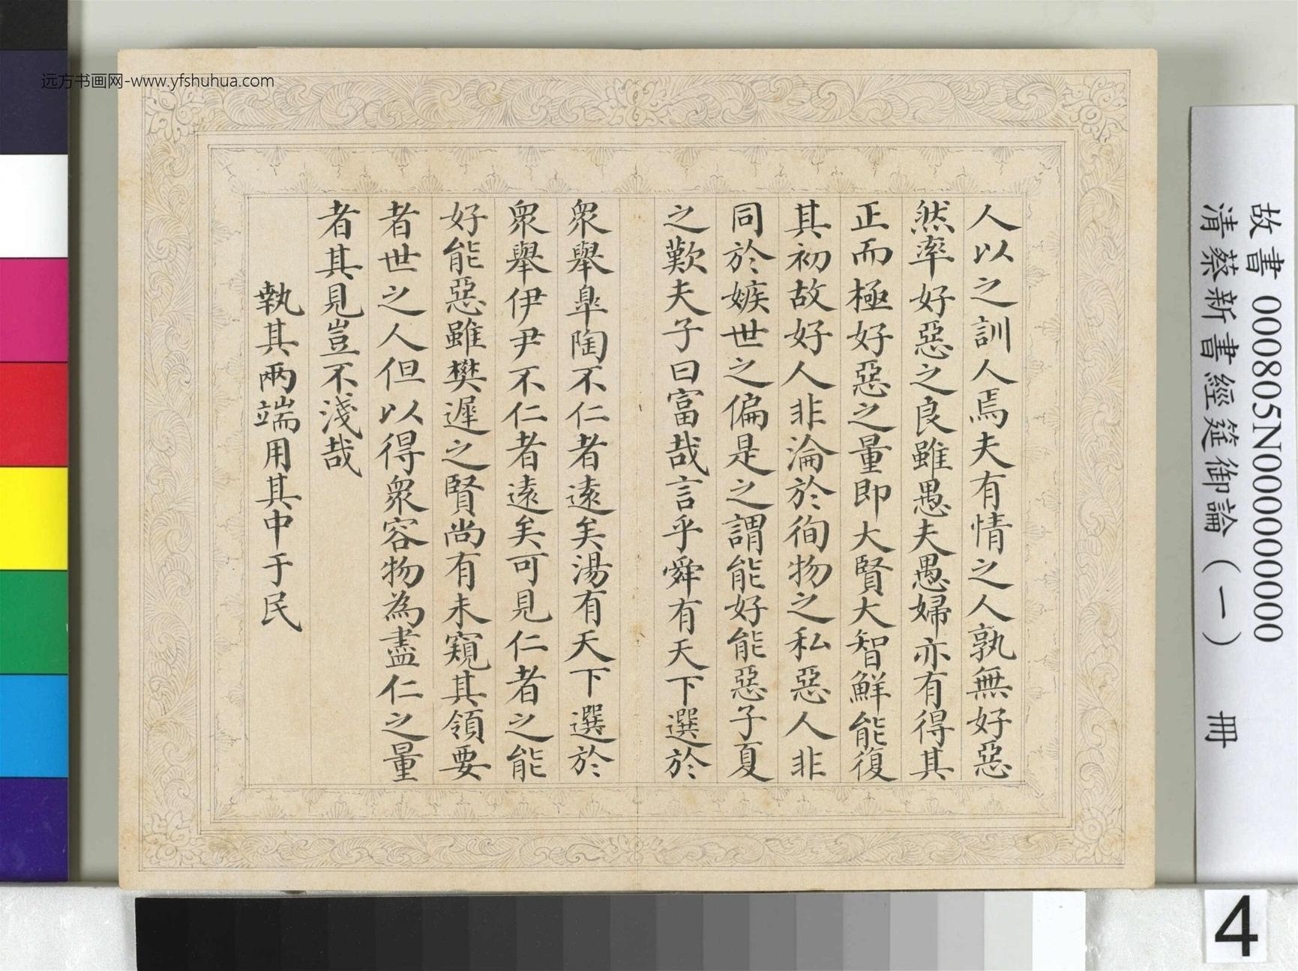 远方书画网-www.yfshuhua.com
故書 000805N000000000
清蔡新書經筵御論（一） 冊
人以之訓人焉夫有情之人孰無好惡
然率好惡之良雖愚夫愚婦亦有得其
正而極好惡之量即大賢大智鮮能復
其初故好人非淪於徇物之私惡人非
同於嫉世之偏是之謂能好能惡子夏
之歎夫子曰富哉言乎舜有天下選於
衆舉臯陶不仁者遠矣湯有天下選於
衆舉伊尹不仁者遠矣可見仁者之能
好能惡雖樊遲之賢尚有未窺其領要
者世之人但以得衆容物為盡仁之量
者其見豈不淺哉
執其兩端用其中于民
4